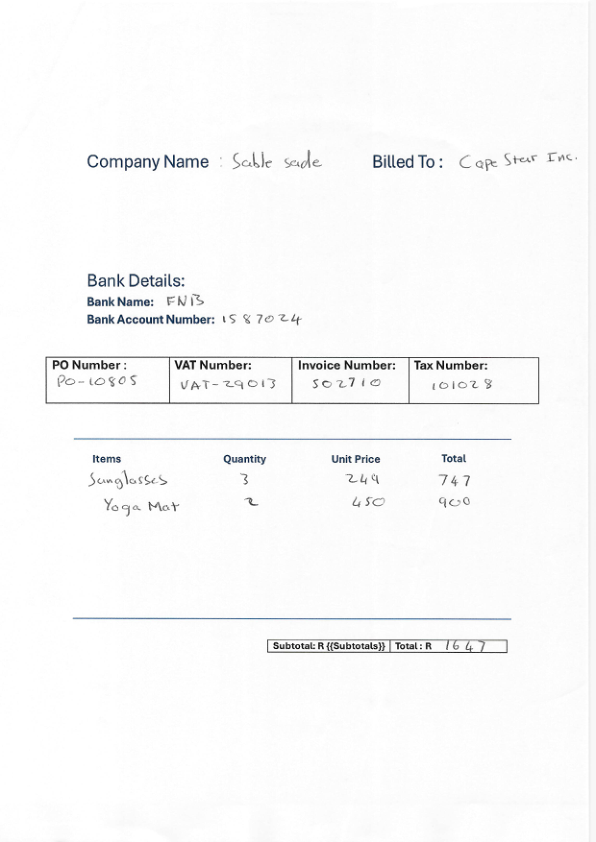 Company Name : Sable sade Billed To : Cape Star Inc.
Bank Details:
Bank Name: FNB
Bank Account Number: 1587024
PO Number : VAT Number: Invoice Number: Tax Number:
PO-10805 VAT-29013 502710 101028
Items Quantity Unit Price Total
Sunglasses 3 249 747
Yoga Mat 2 450 900
Subtotal: R {{Subtotals}} Total : R 1647